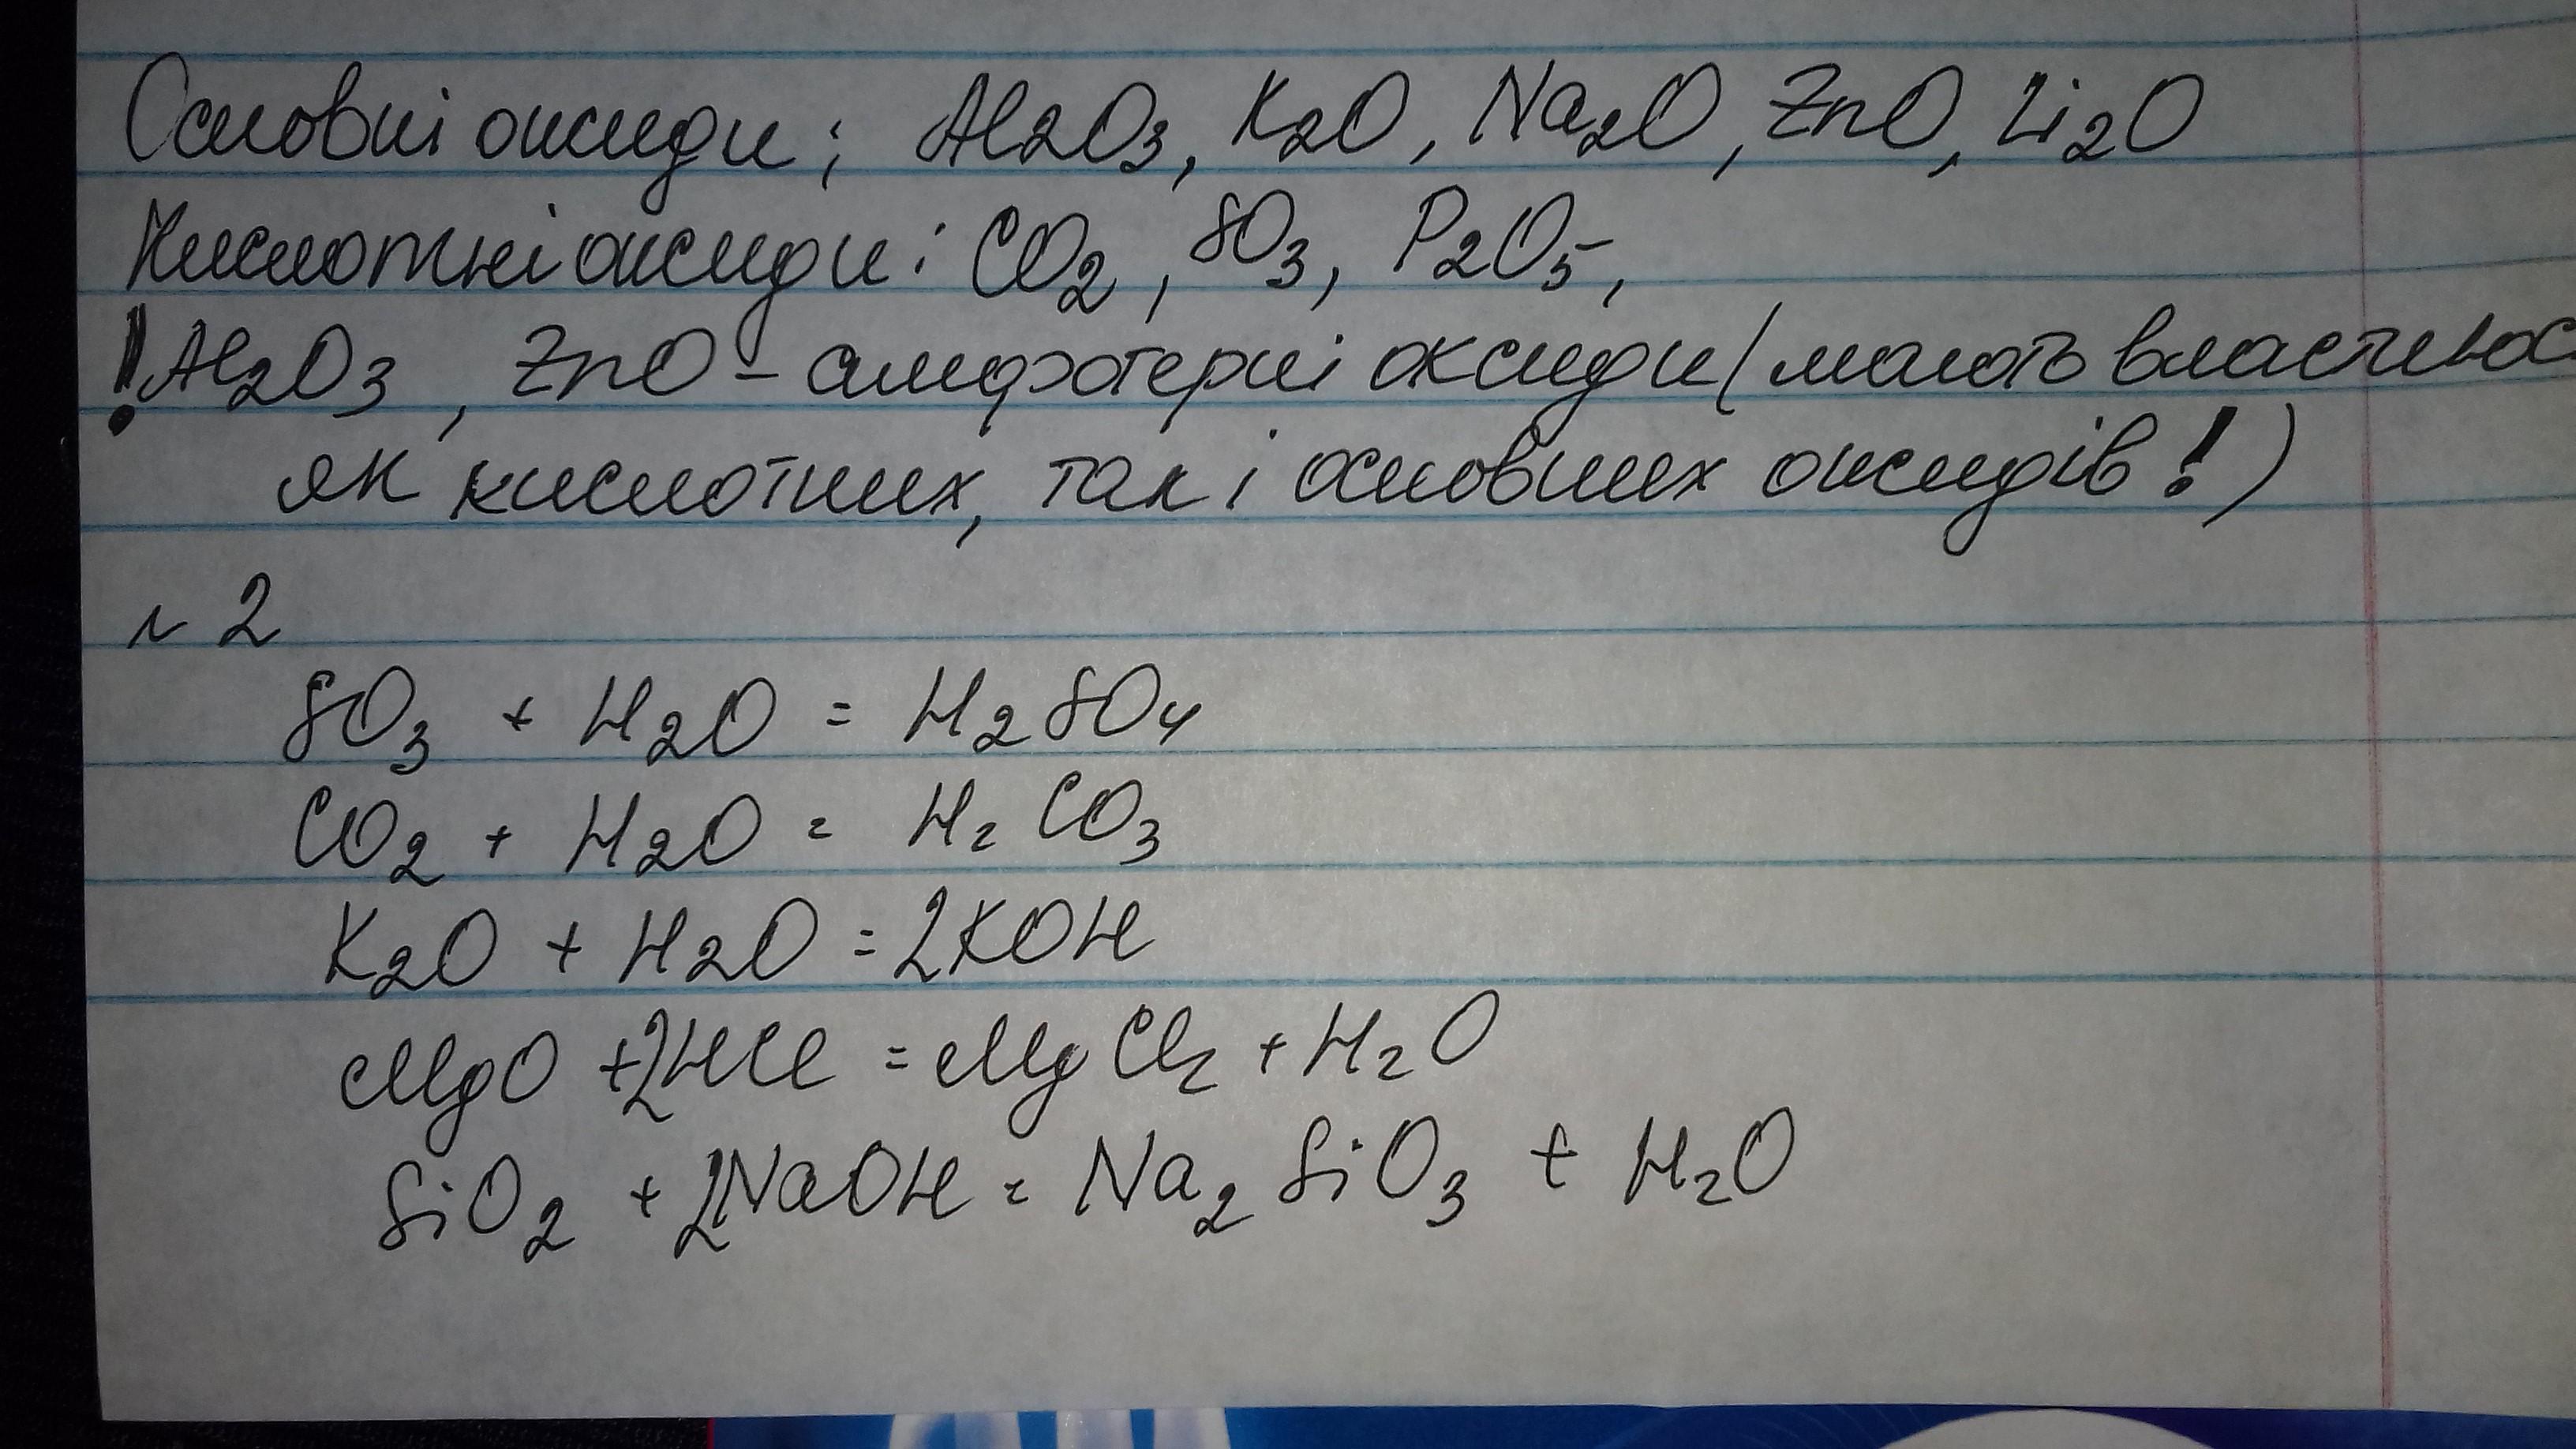 Основні оксиди: Al2O3, K2O, Na2O, ZnO, Li2O
Кислотні оксиди: CO2, SO3, P2O5,
! Al2O3, ZnO - амфотерні оксиди (мають властивос
як кислотних, так і основних оксидів!)
№2
SO3 + H2O = H2SO4
CO2 + H2O = H2CO3
K2O + H2O = 2KOH
MgO + 2HCl = MgCl2 + H2O
SiO2 + 2NaOH = Na2SiO3 + H2O